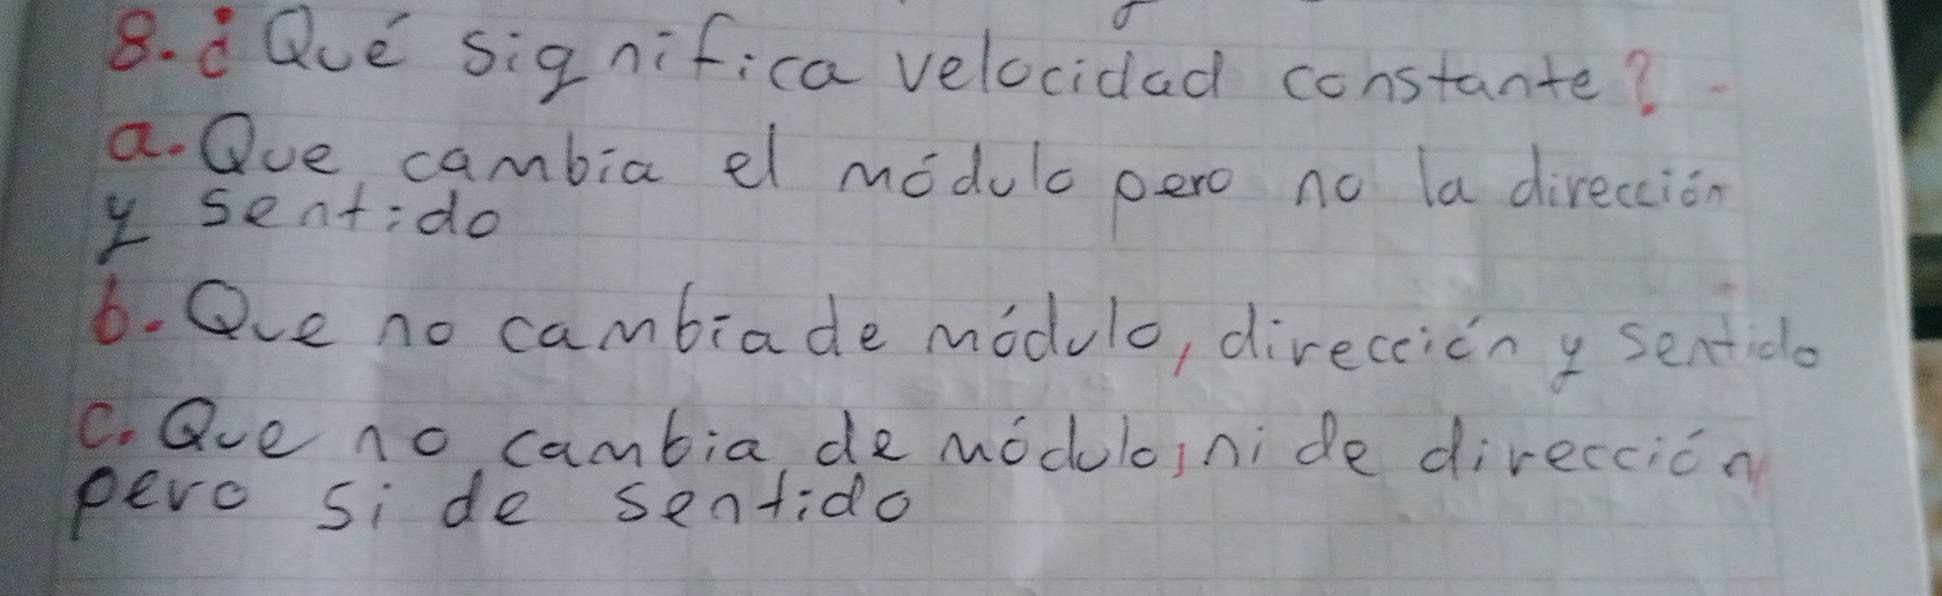 8. ¿Qué significa velocidad constante?
a. Que cambia el módulo pero no la dirección
y sentido
b. Que no cambia de módulo, dirección y sentido
c. Que no cambia de módulo, ni de dirección
pero si de sentido